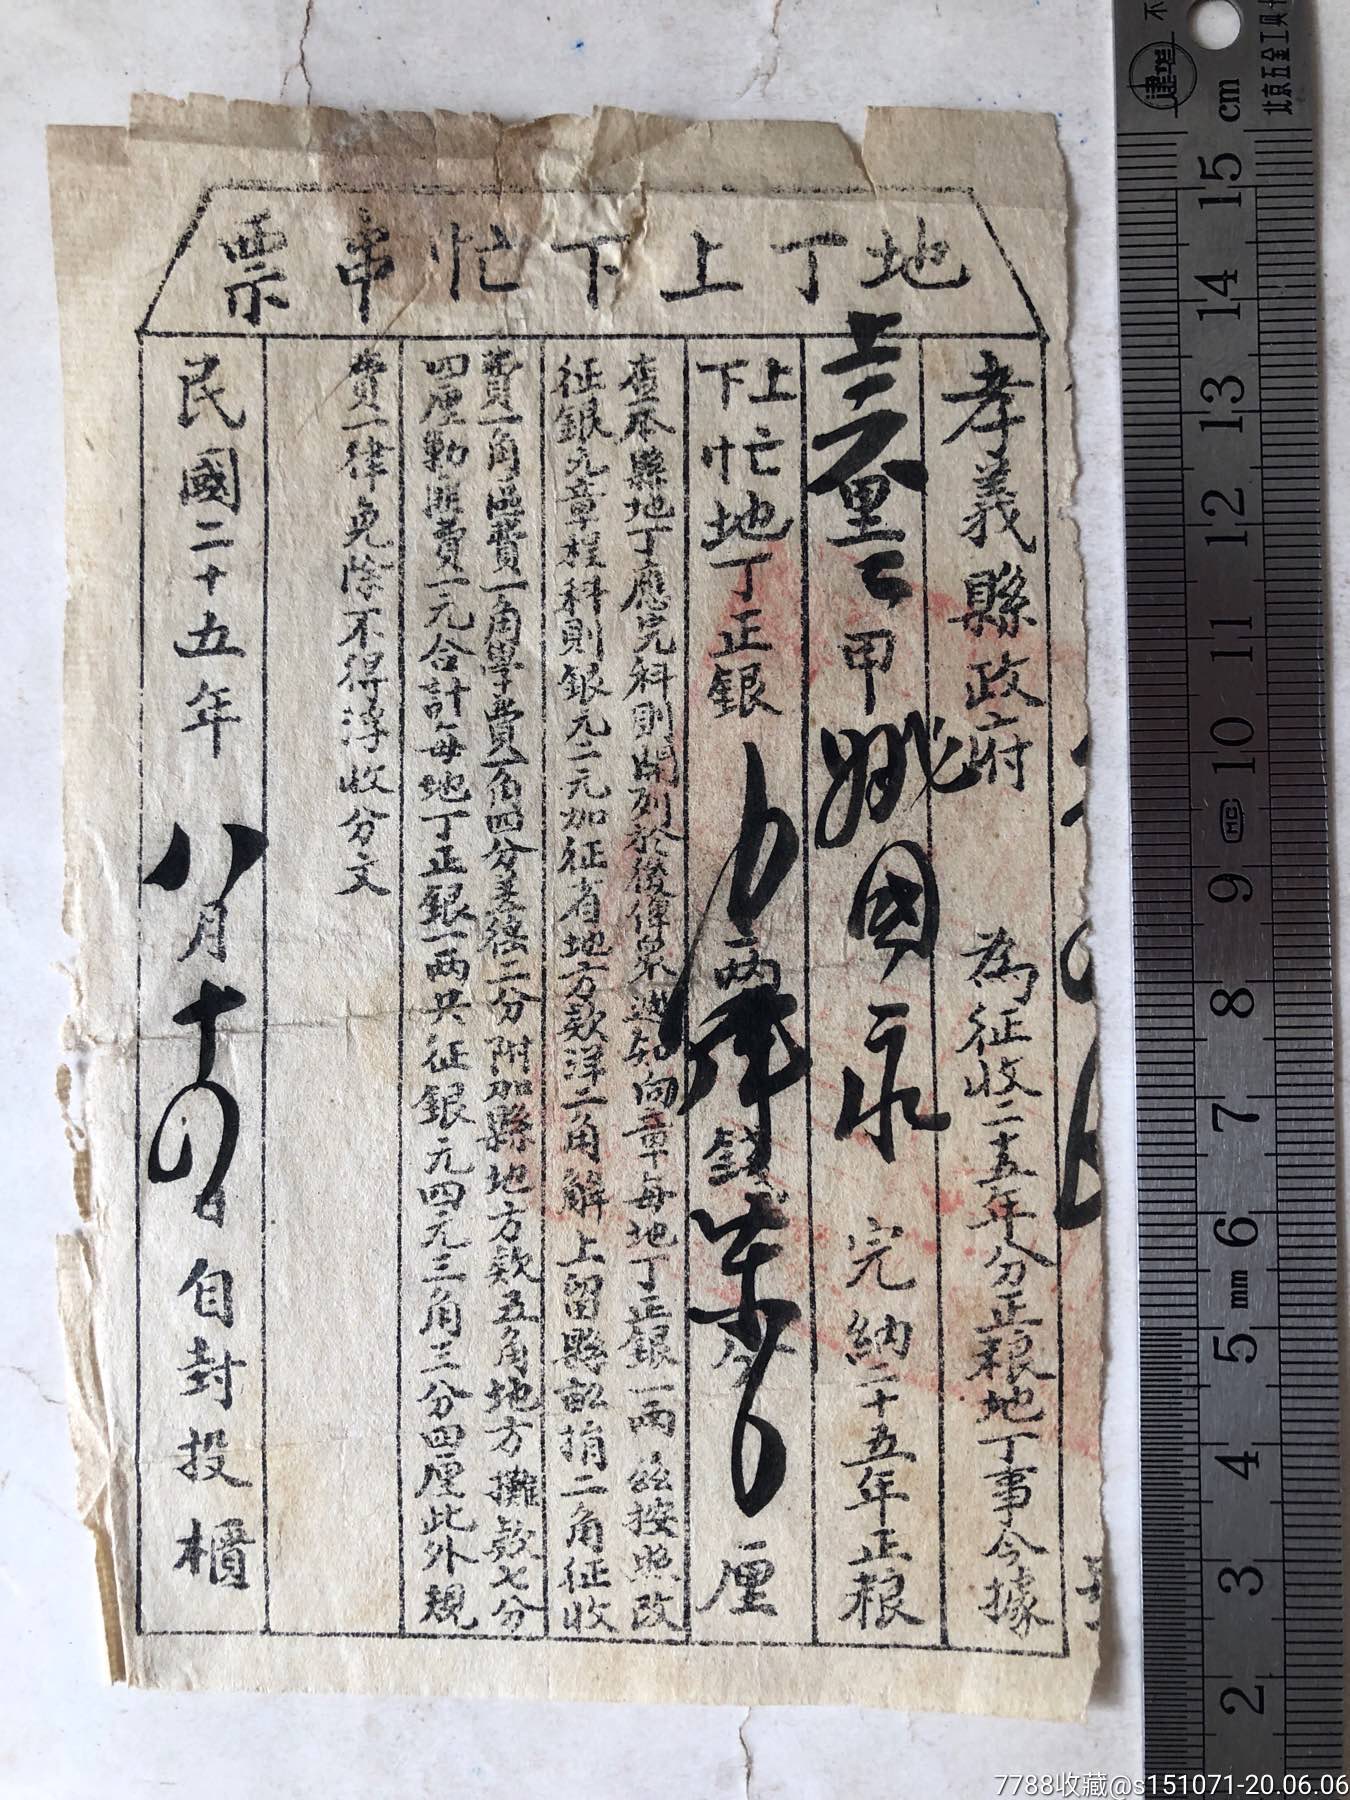 地丁上下忙串票
孝義縣政府 為征收二十五年分正粮地丁事今據
里 甲姚國永 完納二十五年正粮
上下忙地丁正銀 兩 錢 分 厘
查本縣地丁應完科則開列於後俾眾週知向章每地丁正銀一兩 按照改
征銀元章程科則銀元二元加征省地方款洋二角解 上留縣畝捐二角征收
費一角區費一角學費一角四分差徭二分附加縣地方款五角地方攤款七分
四厘勦匪費一元合計每地丁正銀一兩共征銀元四元三角三分四厘此外規
費一律免除不得浮收分文
民國二十五年 八月十 日自封投櫃
北京五金工具
cm
15
14
13
12
11
10
9
8
7
6
mm
5
4
3
2
MC
7788收藏@s151071-20.06.06